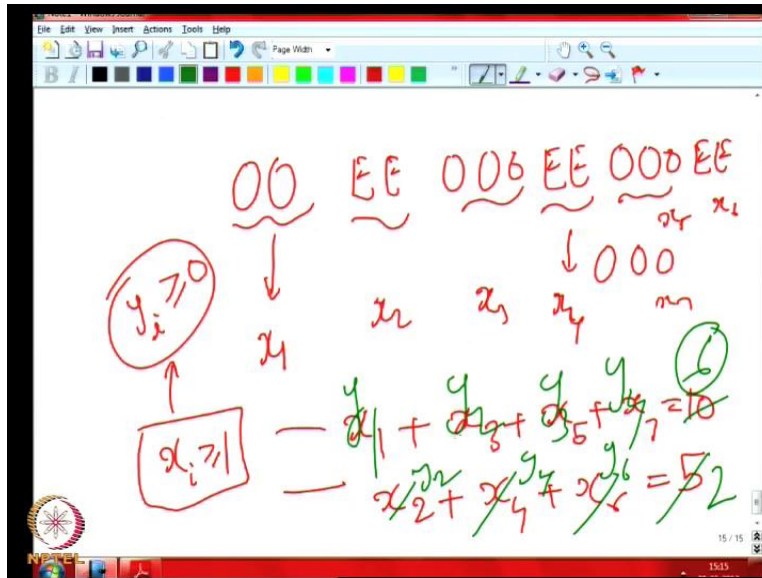 File Edit View Insert Actions Tools Help
Page Width
B I
OO EE OOO EE OOO EE
x₅ x₆
OOO
y_i ≥ 0
x₁ x₂ x₃ x₄ x₇
6
y₁ y₃ y₅ y₇
x_i ≥ 1 — x₁ + x₃ + x₅ + x₇ = 10
— x₂ + x₄ + x₆ = 5 2
y₂ y₄ y₆
15 / 15
NPTEL
15:15